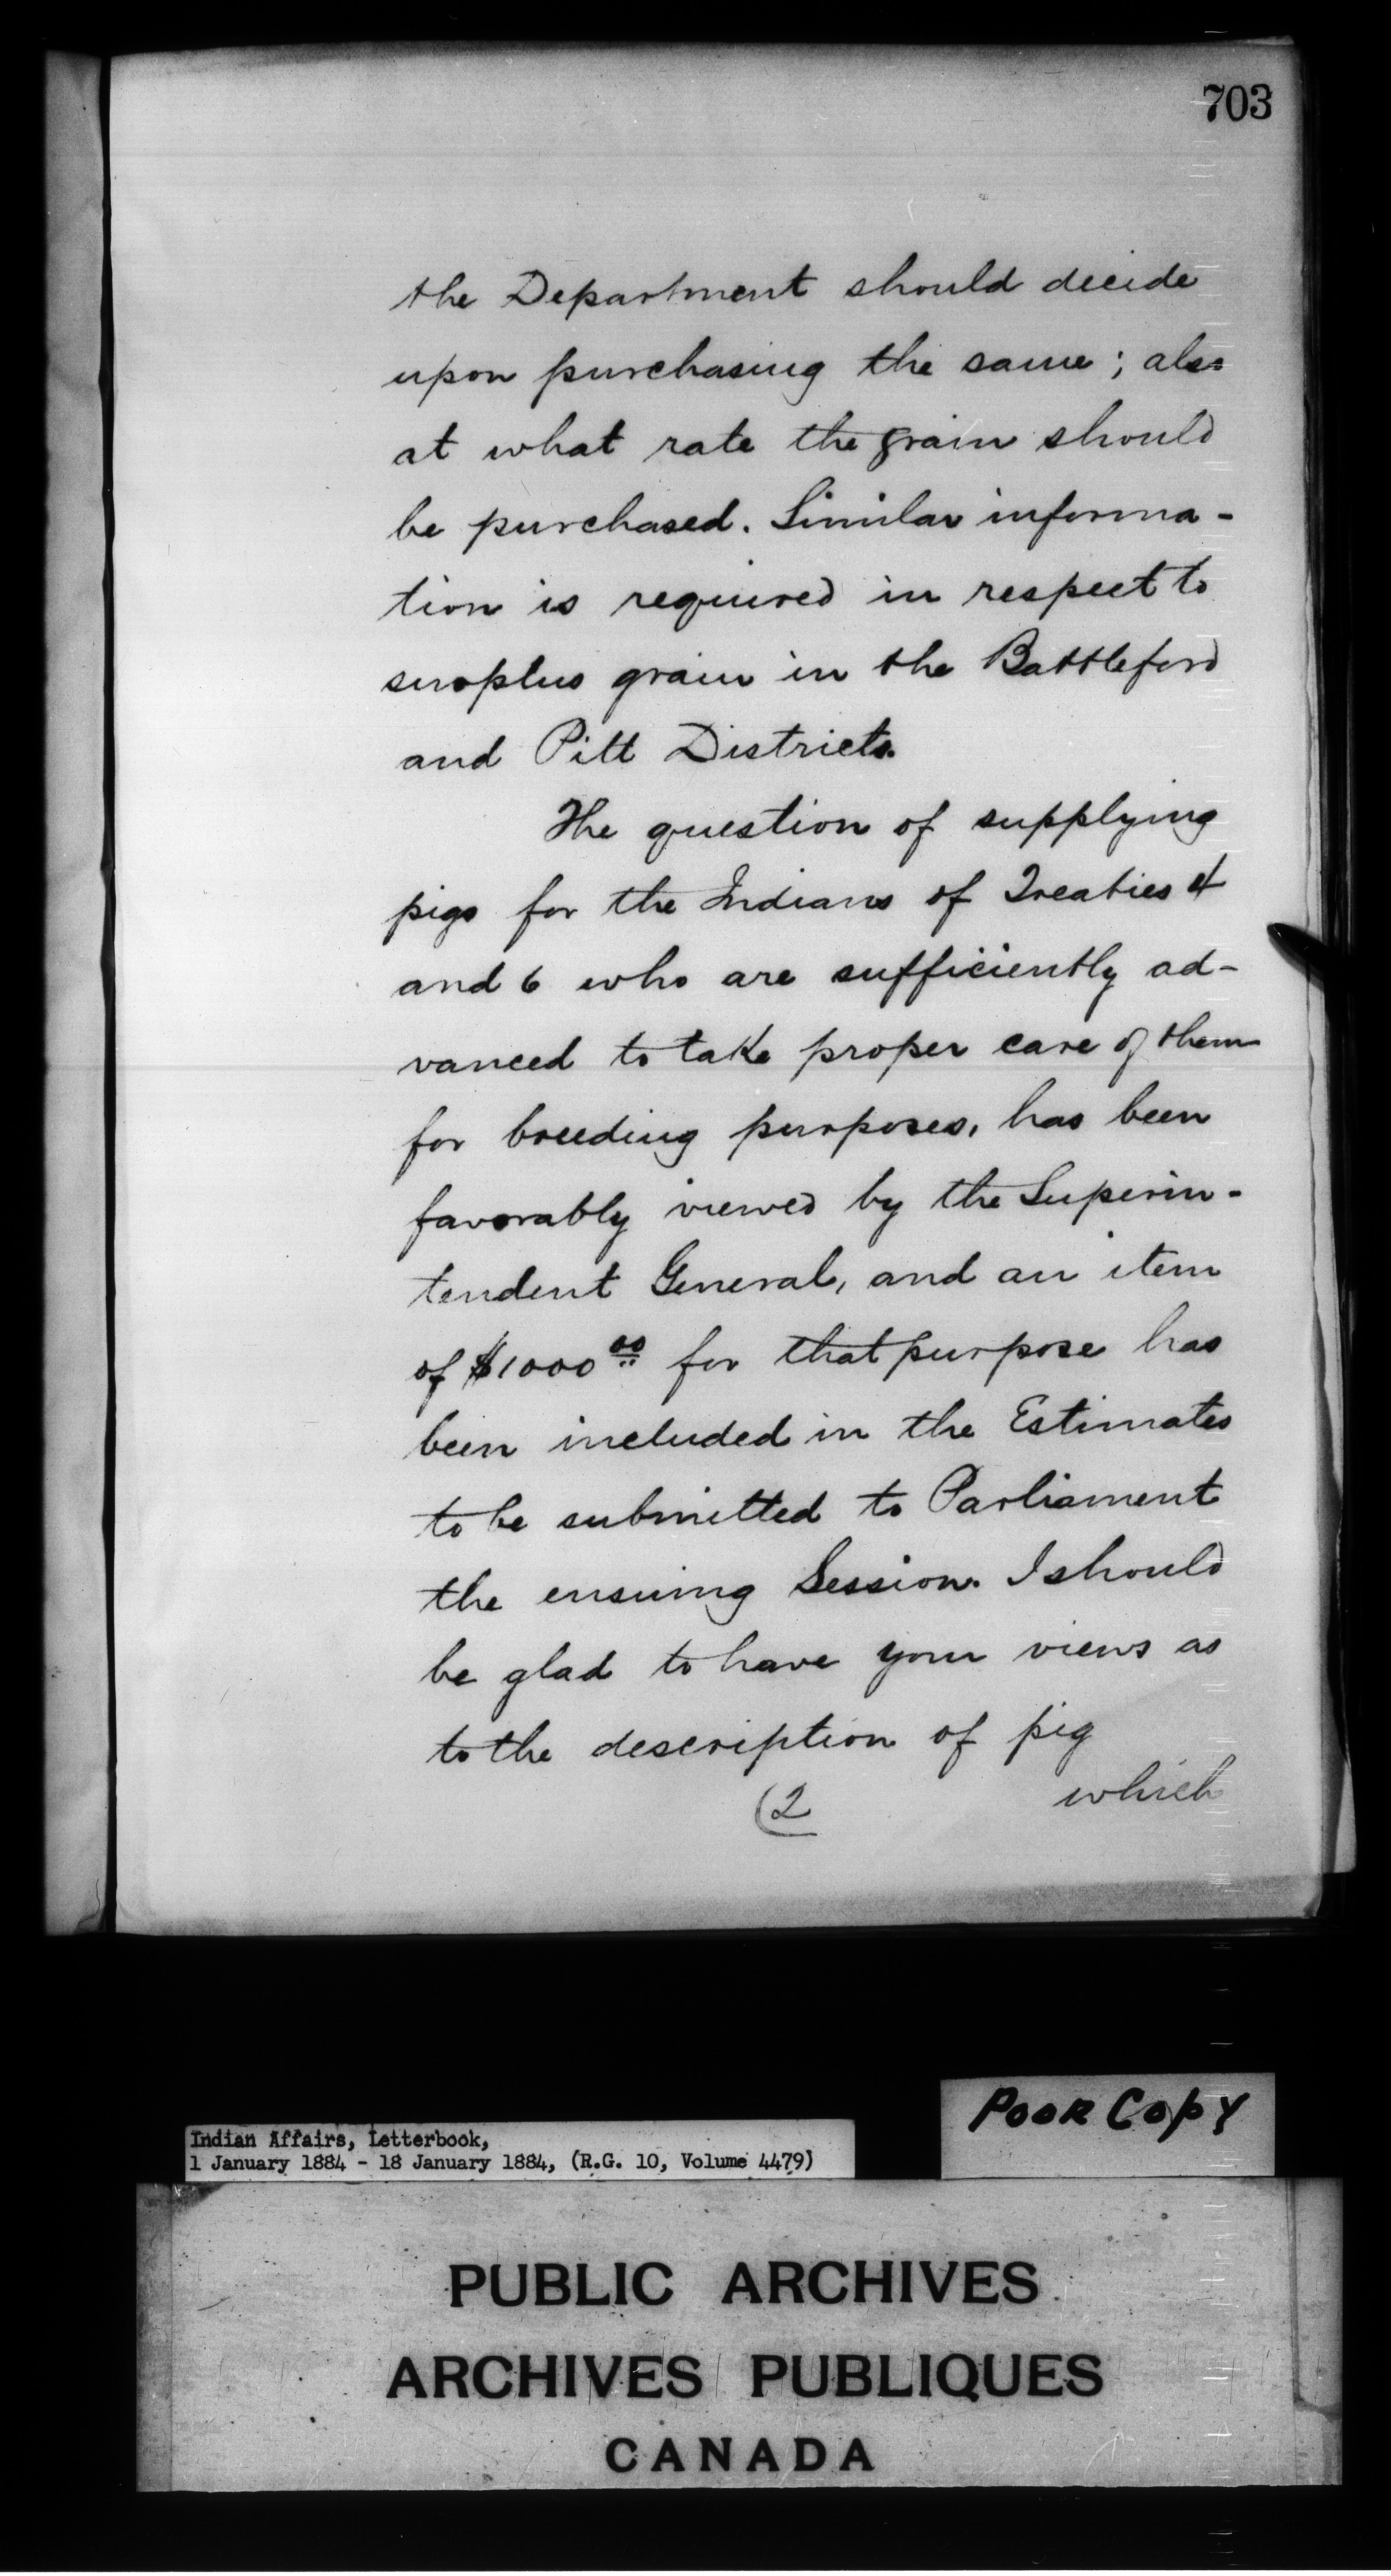 703
the Department should decide
upon purchasing the same; also
at what rate the grain should
be purchased. Similar informa-
tion is required in respect to
surplus grain in the Battleford
and Pitt Districts.
The question of supplying
pigs for the Indians of Treaties 4
and 6 who are sufficiently ad-
vanced to take proper care of them
for breeding purposes, has been
favorably viewed by the Superin-
tendent General, and an item
of $1000 00 for that purpose has
been included in the Estimates
to be submitted to Parliament
the ensuing Session. I should
be glad to have your views as
to the description of pig
(2 which
Poor Copy
Indian Affairs, Letterbook,
1 January 1884 - 18 January 1884, (R.G. 10, Volume 4479)
PUBLIC ARCHIVES
ARCHIVES PUBLIQUES
CANADA